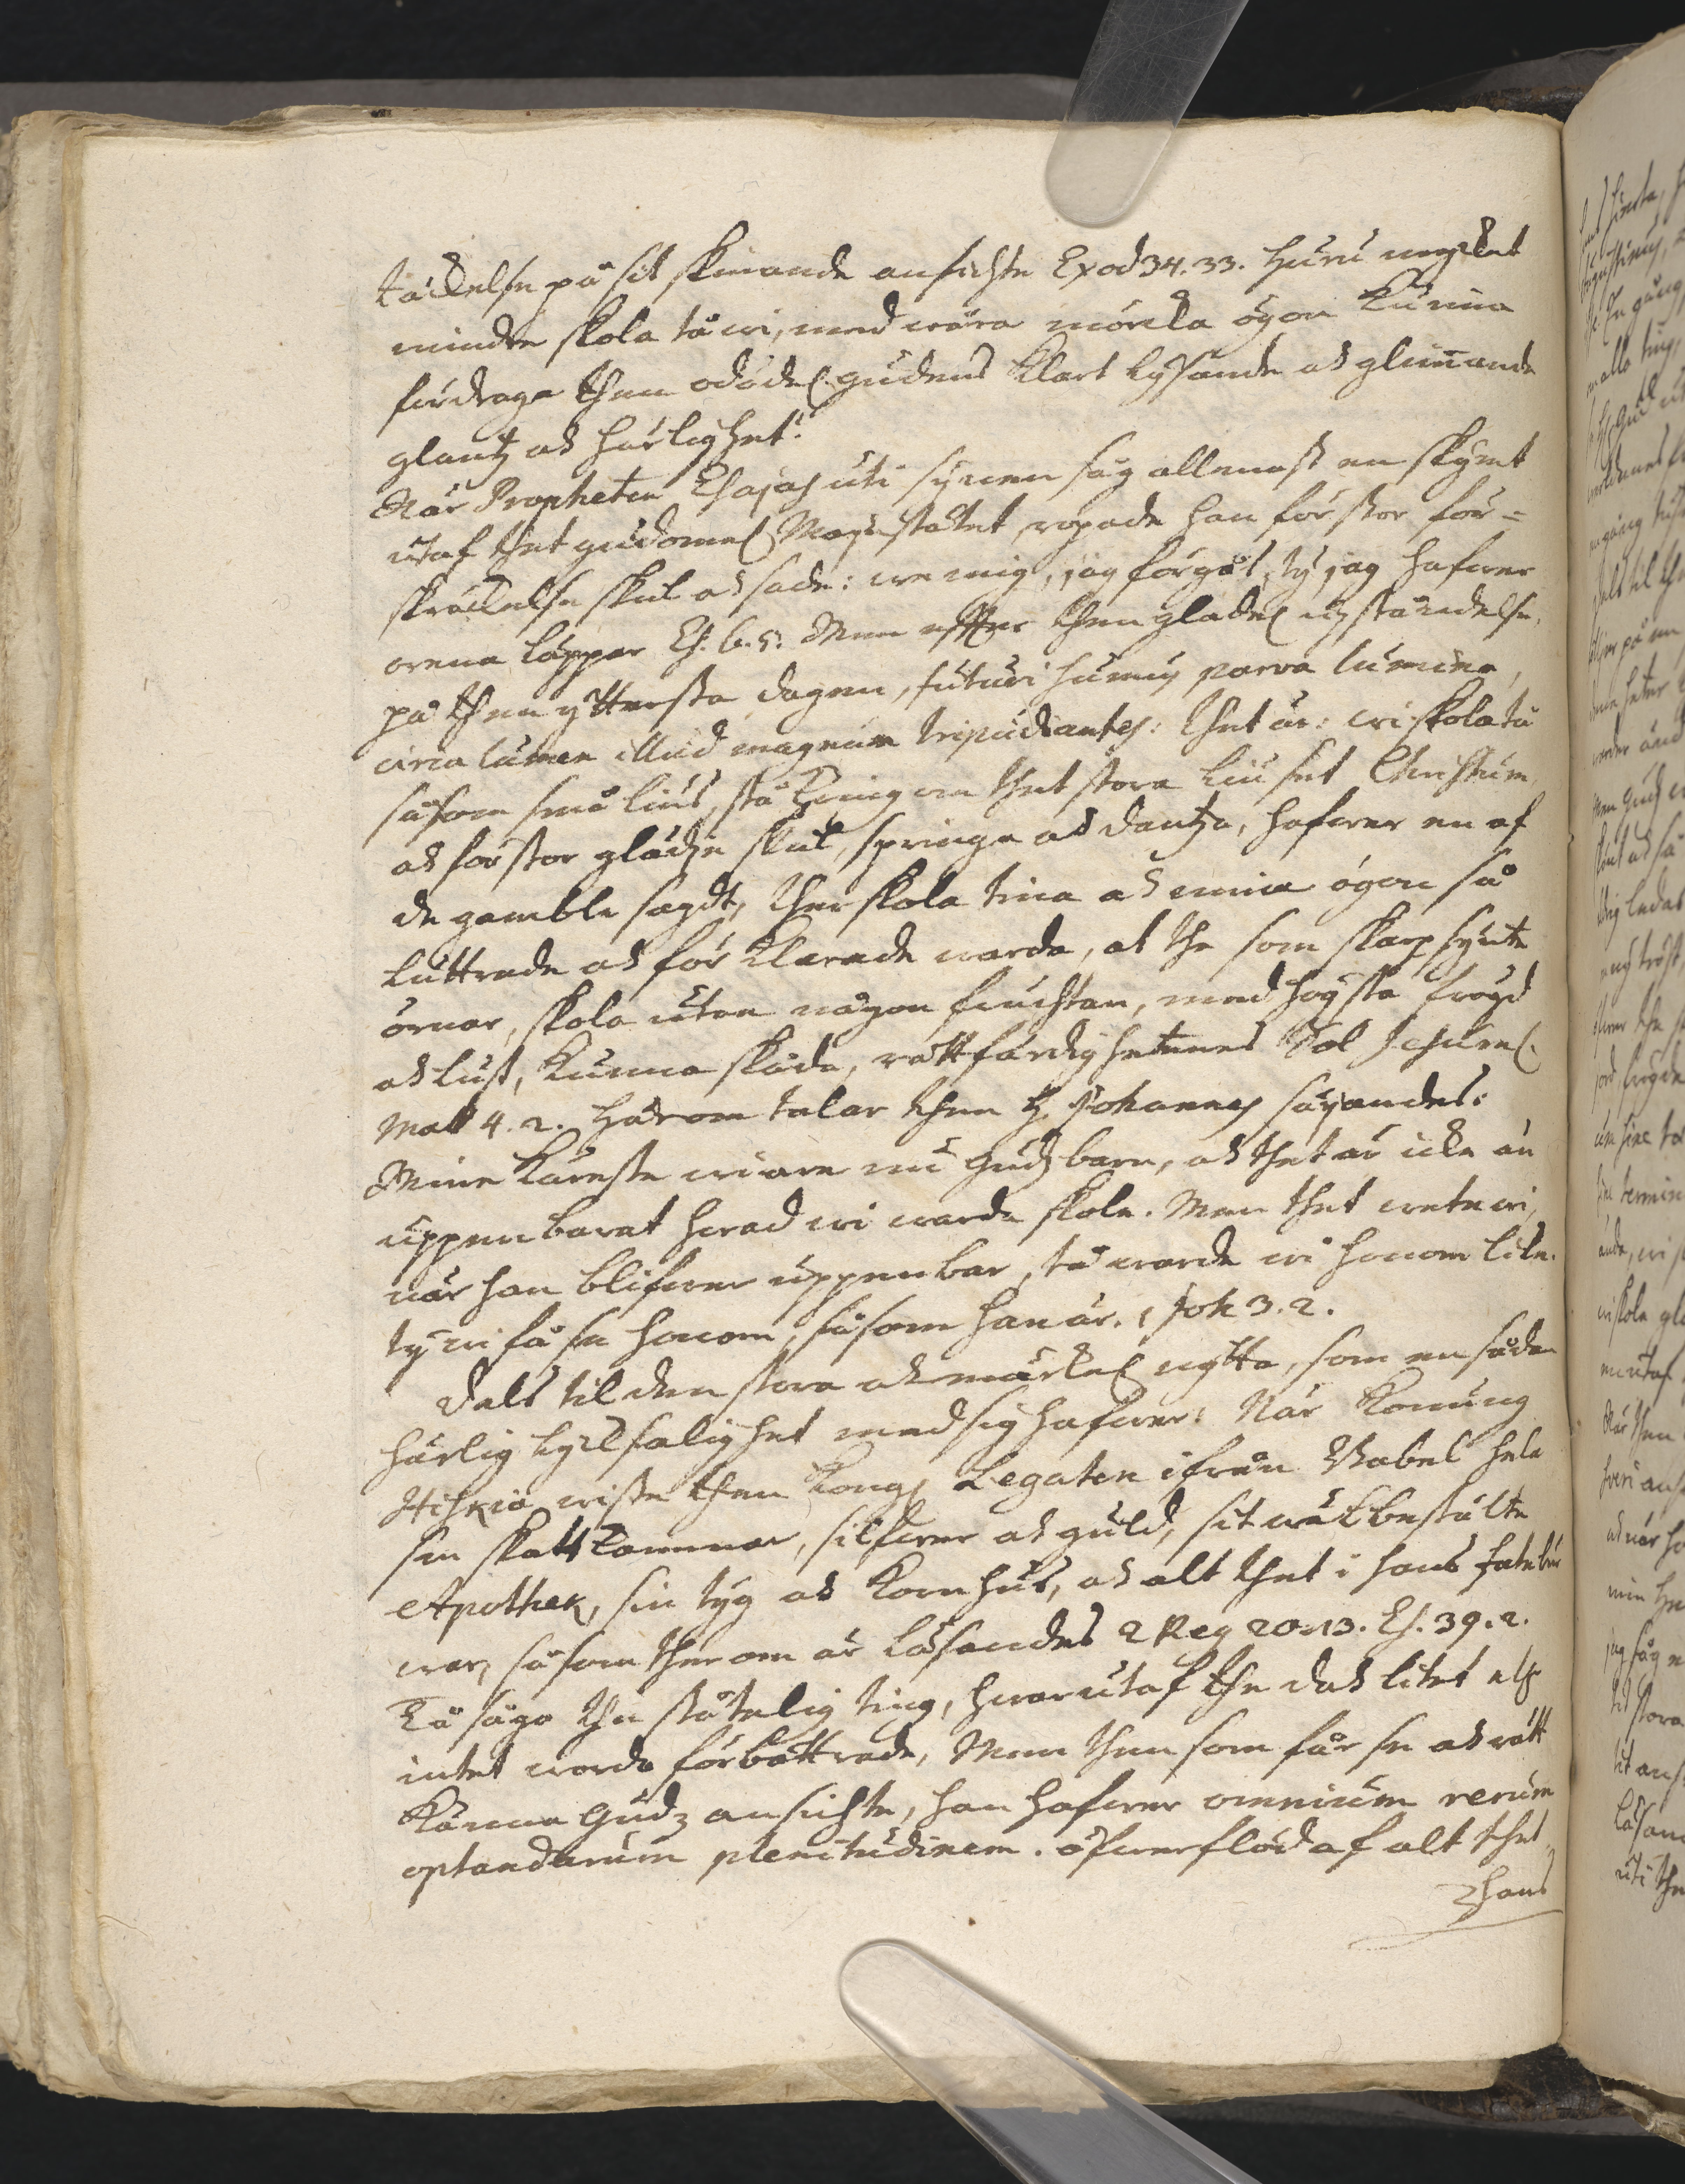 täckelse på sit skinande ansichte Exod 34. 33. huru mycket
mindre skola tå wi, med wåra mörcka ögon kunna
fördraga then odödel. gudens klart lysande och glimmande
glantz och härlighet?
När Propheten Esajas uti synen såg allenast en skymt
utaf thet gudomel. Majestätet, ropade han för stor för-
skräckelse skul och sade: we mig, jag förgås, ty jag hafwer
orena läppar Es. 6. 5. Men effter then gladel. upståndelse
på then ytterste dagen, futuri sumus parva lumina,
circa lumen illud magnum tripudiantes: thet är: wi skola tå
såsom små lius, stå kring om thet stora liuset Christum
och för stor glädje skul, springa och dantza, hafwer en af
de gamble sagdt, ther skola tina och mina ögon så
luttrade och förklarade warda, at the som skarpsynte
örnar, skola utan någon fruchtan, med högsta frögd
och lust, kunna skåda, rättfärdighetenes Sol Jesum.
Mal 4. 2. Härom talar then H. Johannes säyandes:
Mine käreste wi äre nu Gudz barn, och thet är icke än
uppenbarat hwad wi warda skole. Men thet wete wi,
när han blifwer uppenbar, tå warde wi honom like.
ty wi få se honom, såsom han är. 1 Joh 3. 2.
Dels til den stora och märckel. nytta, som en sådan
härlig lycksalighet med sig hafwer: När Konung
Hiskia wiste then Kongl. Legaten ifrån Babel hela
sin skattkammar, silfwer och guld, sit wäl bestälte
Apothek, sin tyg och kornhus, och alt thet i hans fatebur
war, såsom ther om är läsandes 2 Reg 20. 13. Es. 39. 2.
Tå sågo the ståtelig ting, hwarutaf the doch litet eller
intet wordo förbättrade, Men then som får se och rätt
känna Gudz ansichte, han hafwer omnium rerum
optandarum plenitudinem. öfwerflöd af alt thet
hans